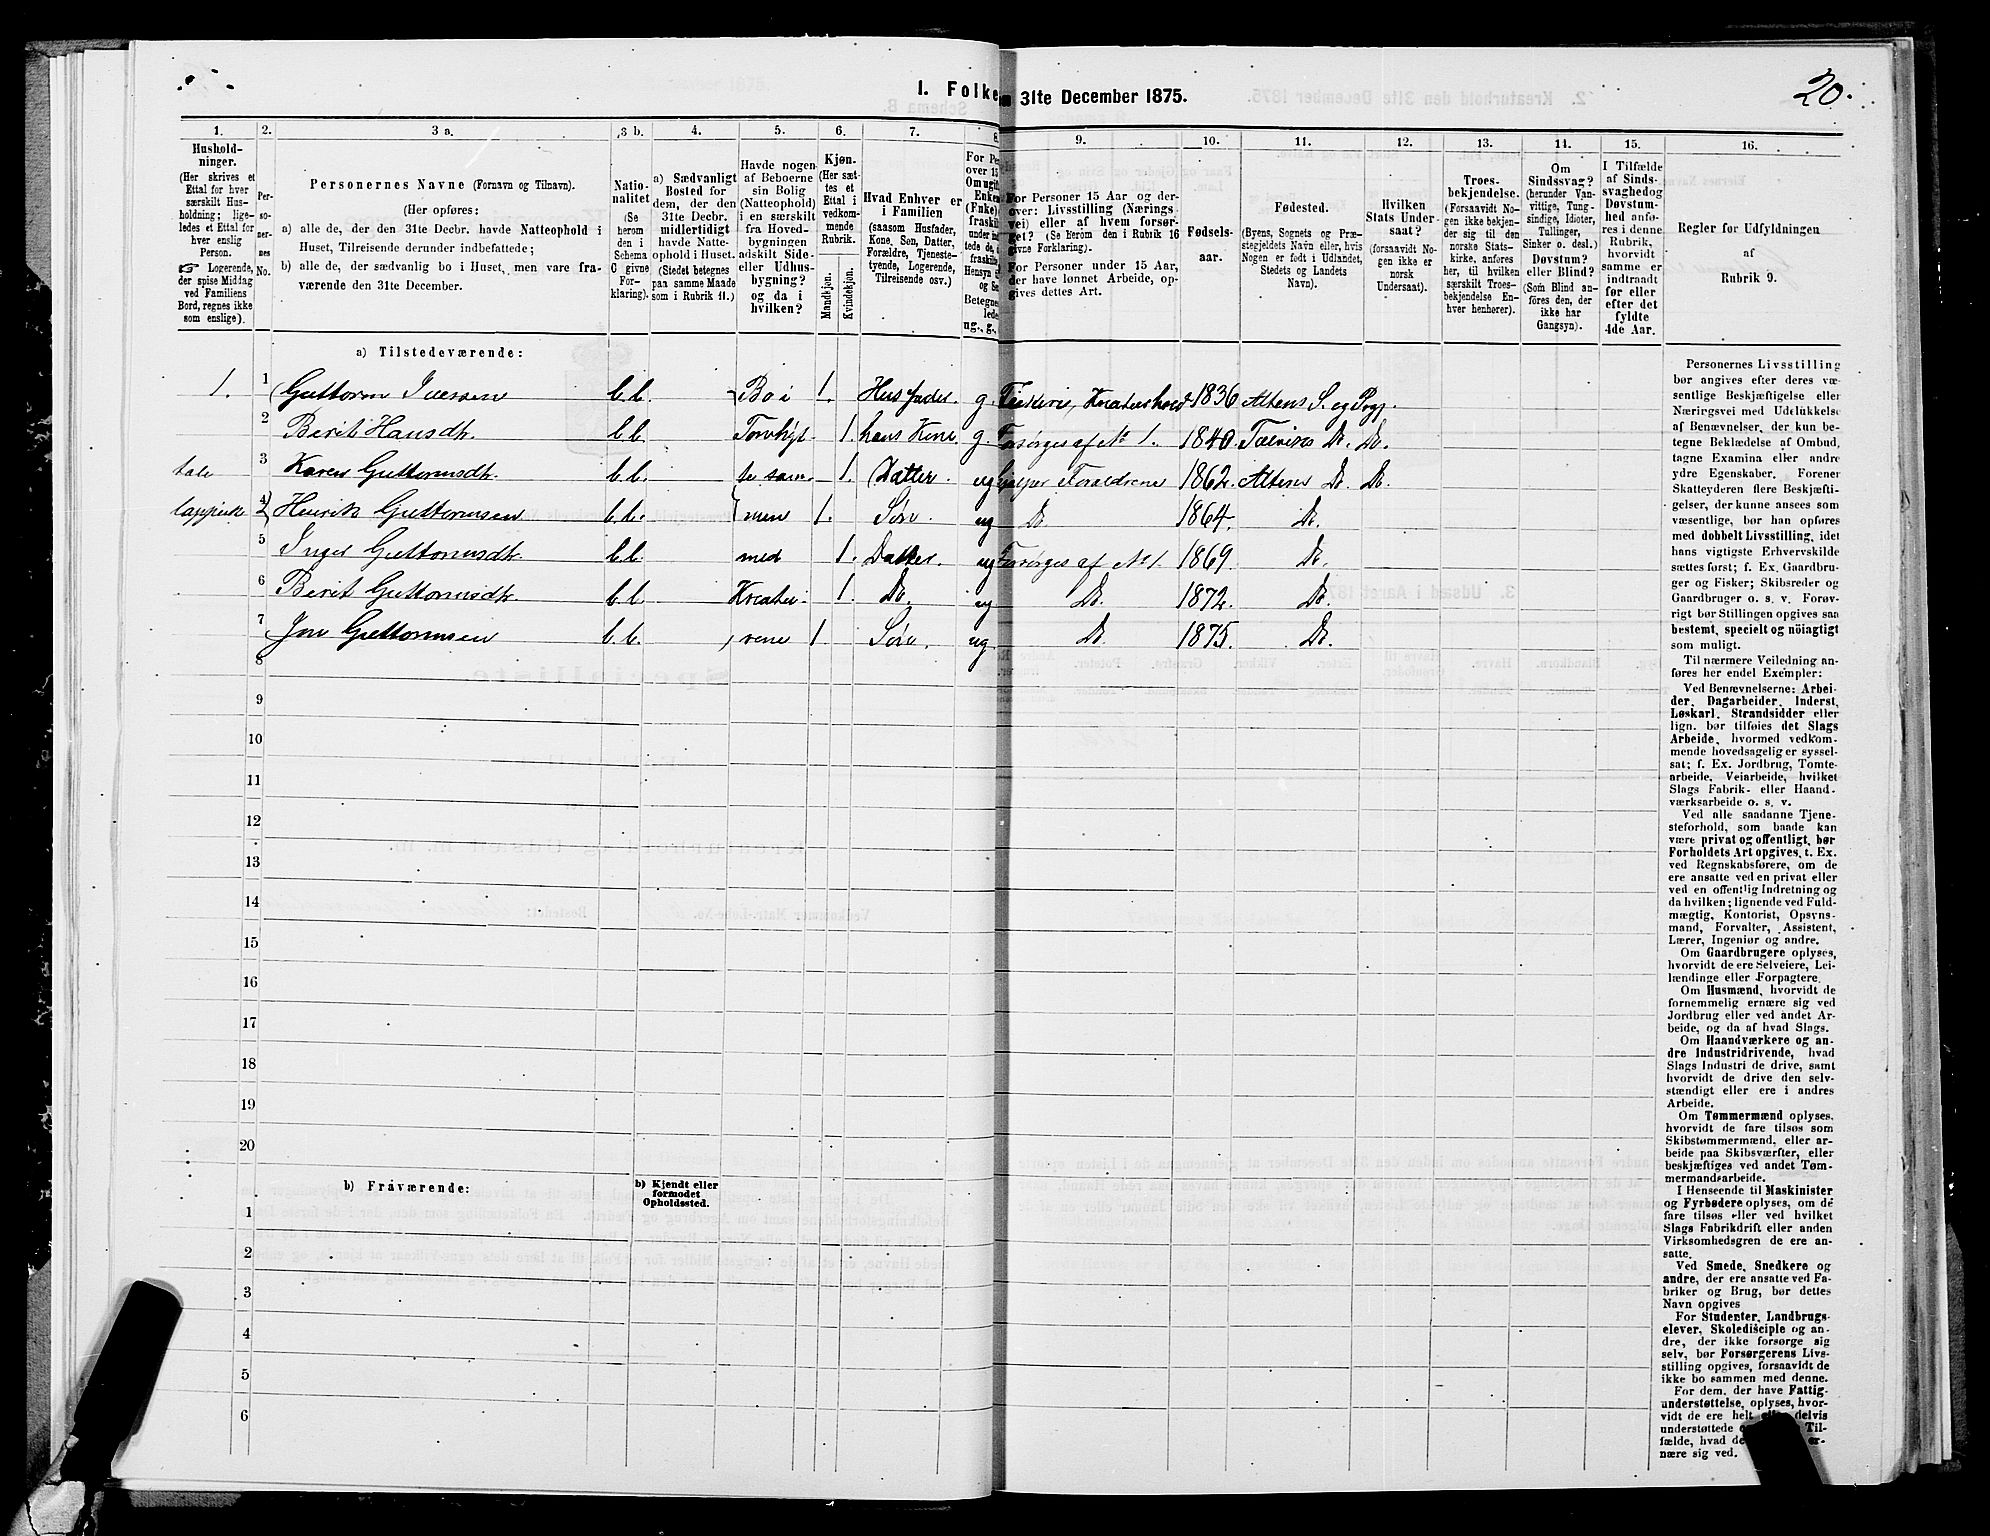 20.
I. Folke
m 31te December 1875.
1. 2. 3 a. 3 b. 4. 5. 6. 7. 8. 9. 10. 11. 12. 13. 14. 15. 16.
Hushold-
ninger.
(Her skrives et
Ettal for hver
særskilt Hus-
holdning; lige-
ledes et Ettal for
hver enslig
Person.
☞ Logerende,
der spise Middag
ved Familiens
Bord, regnes ikke
som enslige).
Per-
so-
ner-
nes
No.
Personernes Navne (Fornavn og Tilnavn).
(Her opføres:
a) alle de, der den 31te Decbr. havde Natteophold i
Huset, Tilreisende derunder indbefattede;
b) alle de, der sædvanlig bo i Huset, men vare fra-
værende den 31te December.
Natio-
nalitet
(Se
herom
den i
Schema
C givne
For-
klaring).
a) Sædvanligt
Bosted for
dem, der den
31te Decbr.
midlertidigt
havde Natte-
ophold i Huset.
(Stedet betegnes
paa samme Maade
som i Rubrik 11.)
Havde nogen
af Beboerne
sin Bolig
(Natteophold)
i en særskilt
fra Hoved-
bygningen
adskilt Side-
eller Udhus-
bygning?
og da i
hvilken?
Kjøn.
(Her sæt-
tes et
Ettal i
vedkom-
mende
Rubrik.
Mandkjøn.
Kvindekjøn.
Hvad Enhver er
i Familien
(saasom Husfader,
Kone, Søn, Datter,
Forældre, Tjeneste-
tyende, Logerende,
Tilreisende osv.)
For Per
over 15
Om ugift
Enken
(Fuke)
fraskil
under in
tede de,
fraskilte
Hensyn
og Se
Betegne
lede
ug., g.,
For Personer 15 Aar og der-
over: Livsstilling (Nærings
vei) eller af hvem forsør-
get? (Se herom den i Rubrik 16
givne Forklaring).
For Personer under 15 Aar,
der have lønnet Arbeide, op-
gives dettes Art.
Fødsels-
aar.
Fødested.
(Byens, Sognets og Præ-
stegjeldets Navn eller, hvis
Nogen er født i Udlandet,
Stedets og Landets
Navn).
Hvilken
Stats Under-
saat?
(forsaavidt No-
gen ikke er
norsk
Undersaat).
Troes-
bekjendelse.
(Forsaavidt No-
gen ikke bekjen-
der sig til den
norske Stats-
kirke, anføres
her, til hvilken
særskilt Troes-
bekjendelse En-
hver henhører).
Om
Sindssvag?
(herunder Van-
vittige, Tung-
sindige, Idioter,
Tullinger,
Sinker o. desl.)
Døvstum?
eller Blind?
(Som Blind an-
føres den, der
ikke har
Gangsyn).
I Tilfælde
af Sinds-
svaghed og
Døvstum-
hed anfø-
res i denne
Rubrik,
hvorvidt
samme er
indtraadt
før eller
efter det
fyldte
4de Aar.
Regler for Udfyldningen
af
Rubrik 9.
a) Tilstedeværende:
1. 1 Guttorm Iversen b.b. Bo i 1. Husfader. g. 1836 Altens S. og Pgj.
2 Berit Hansdtr. b.b. 1. hans Kone g. Forsørges af No 1. 1840. Talviks Do. Do.
tale 3 Karen Guttormsdtr. b.b. te sam- 1. Datter. ug Hjelper Forældrene 1862. Altens Do. Do.
lappisk 4 Henrik Guttormsen b.b. men 1. Søn. ug Do 1864. Do.
5 Inger Guttormsdtr. b.b. med 1. Datter. ug Forsørges af No 1. 1869. Do.
6 Berit Guttormsdtr. b.b. Kreatu- 1. Do. ug Do. 1872. Do.
7 Jon Guttormsen b.b. rene 1 Søn. ug Do. 1875. Do.
8
9
10
11
12
13
14
15
16
17
18
19
20
b) Fraværende:
b) Kjendt eller
formodet
Opholdssted.
1
2
3
4
5
6
Personernes Livsstilling
bør angives efter deres væ-
sentlige Beskjæftigelse eller
Næringsvei med Udelukkelse
af Benævnelser, der kun be-
tegne Beklædelse af Ombud,
tagne Examina eller andre
ydre Egenskaber. Forener
Skatteyderen flere Beskjæfti-
gelser, der kunne ansees som
væsentlige, bør han opføres
med dobbelt Livsstilling, idet
hans vigtigste Erhvervskilde
sættes først; f. Ex. Gaardbru-
ger og Fisker; Skibsreder og
Gaardbruger o. s. v. Forøv-
rigt bør Stillingen opgives saa
bestemt, specielt og nöiagtigt
som muligt.
Til nærmere Veiledning an-
føres her endel Exempler:
Ved Benævnelserne: Arbei-
der, Dagarbeider, Inderst,
Løskarl, Strandsidder eller
lign. bør tilføies det Slags
Arbeide, hvormed vedkom-
mende hovedsagelig er syssel-
sat; f. Ex. Jordbrug, Tomte-
arbeide, Veiarbeide, hvilket
Slags Fabrik- eller Haand-
værksarbeide o. s. v.
Ved alle saadanne Tjene-
steforhold, som baade kan
være privat og offentligt, bør
Forholdets Art opgives, t. Ex.
ved Regnskabsførere, om de
ere ansatte ved en privat eller
ved en offentlig Indretning og
da hvilken; lignende ved Fuld-
mægtig, Kontorist, Opsyns-
mand, Forvalter, Assistent,
Lærer, Ingeniør og andre.
Om Gaardbrugere oplyses,
hvorvidt de ere Selveiere, Lei-
lændinge eller Forpagtere.
Om Husmænd, hvorvidt de
fornemmelig ernære sig ved
Jordbrug eller ved andet Ar-
beide, og da af hvad Slags.
Om Haandværkere og an-
dre Industridrivende, hvad
Slags Industri de drive, samt
hvorvidt de drive den selv-
stændigt eller ere i andres
Arbeide.
Om Tømmermænd oplyses,
hvorvidt de fare tilsøs som
Skibstømmermænd, eller ar-
beide paa Skibsværfter, eller
beskjæftiges ved andet Tøm-
mermandsarbeide.
I Henseende til Maskinister
og Fyrbødere oplyses, om de
fare tilsøs eller ved hvilket
Slags Fabrikdrift eller anden
Virksomhedsgren de ere an-
satte.
Ved Smede, Snedkere og
andre, der ere ansatte ved Fa-
briker og Brug, bør dettes
Navn opgives
For Studenter, Landbrugs-
elever, Skoledisciple og an-
dre, der ikke forsørge sig
selv, bør Forsørgerens Livs-
stilling opgives, forsaavidt de
ikke bo sammen med denne.
For dem, der have Fattig-
understøttelse, oplyses, hvor-
vidt de ere helt eller delvis
understøttede
fælde, hvad de
nære sig ved.